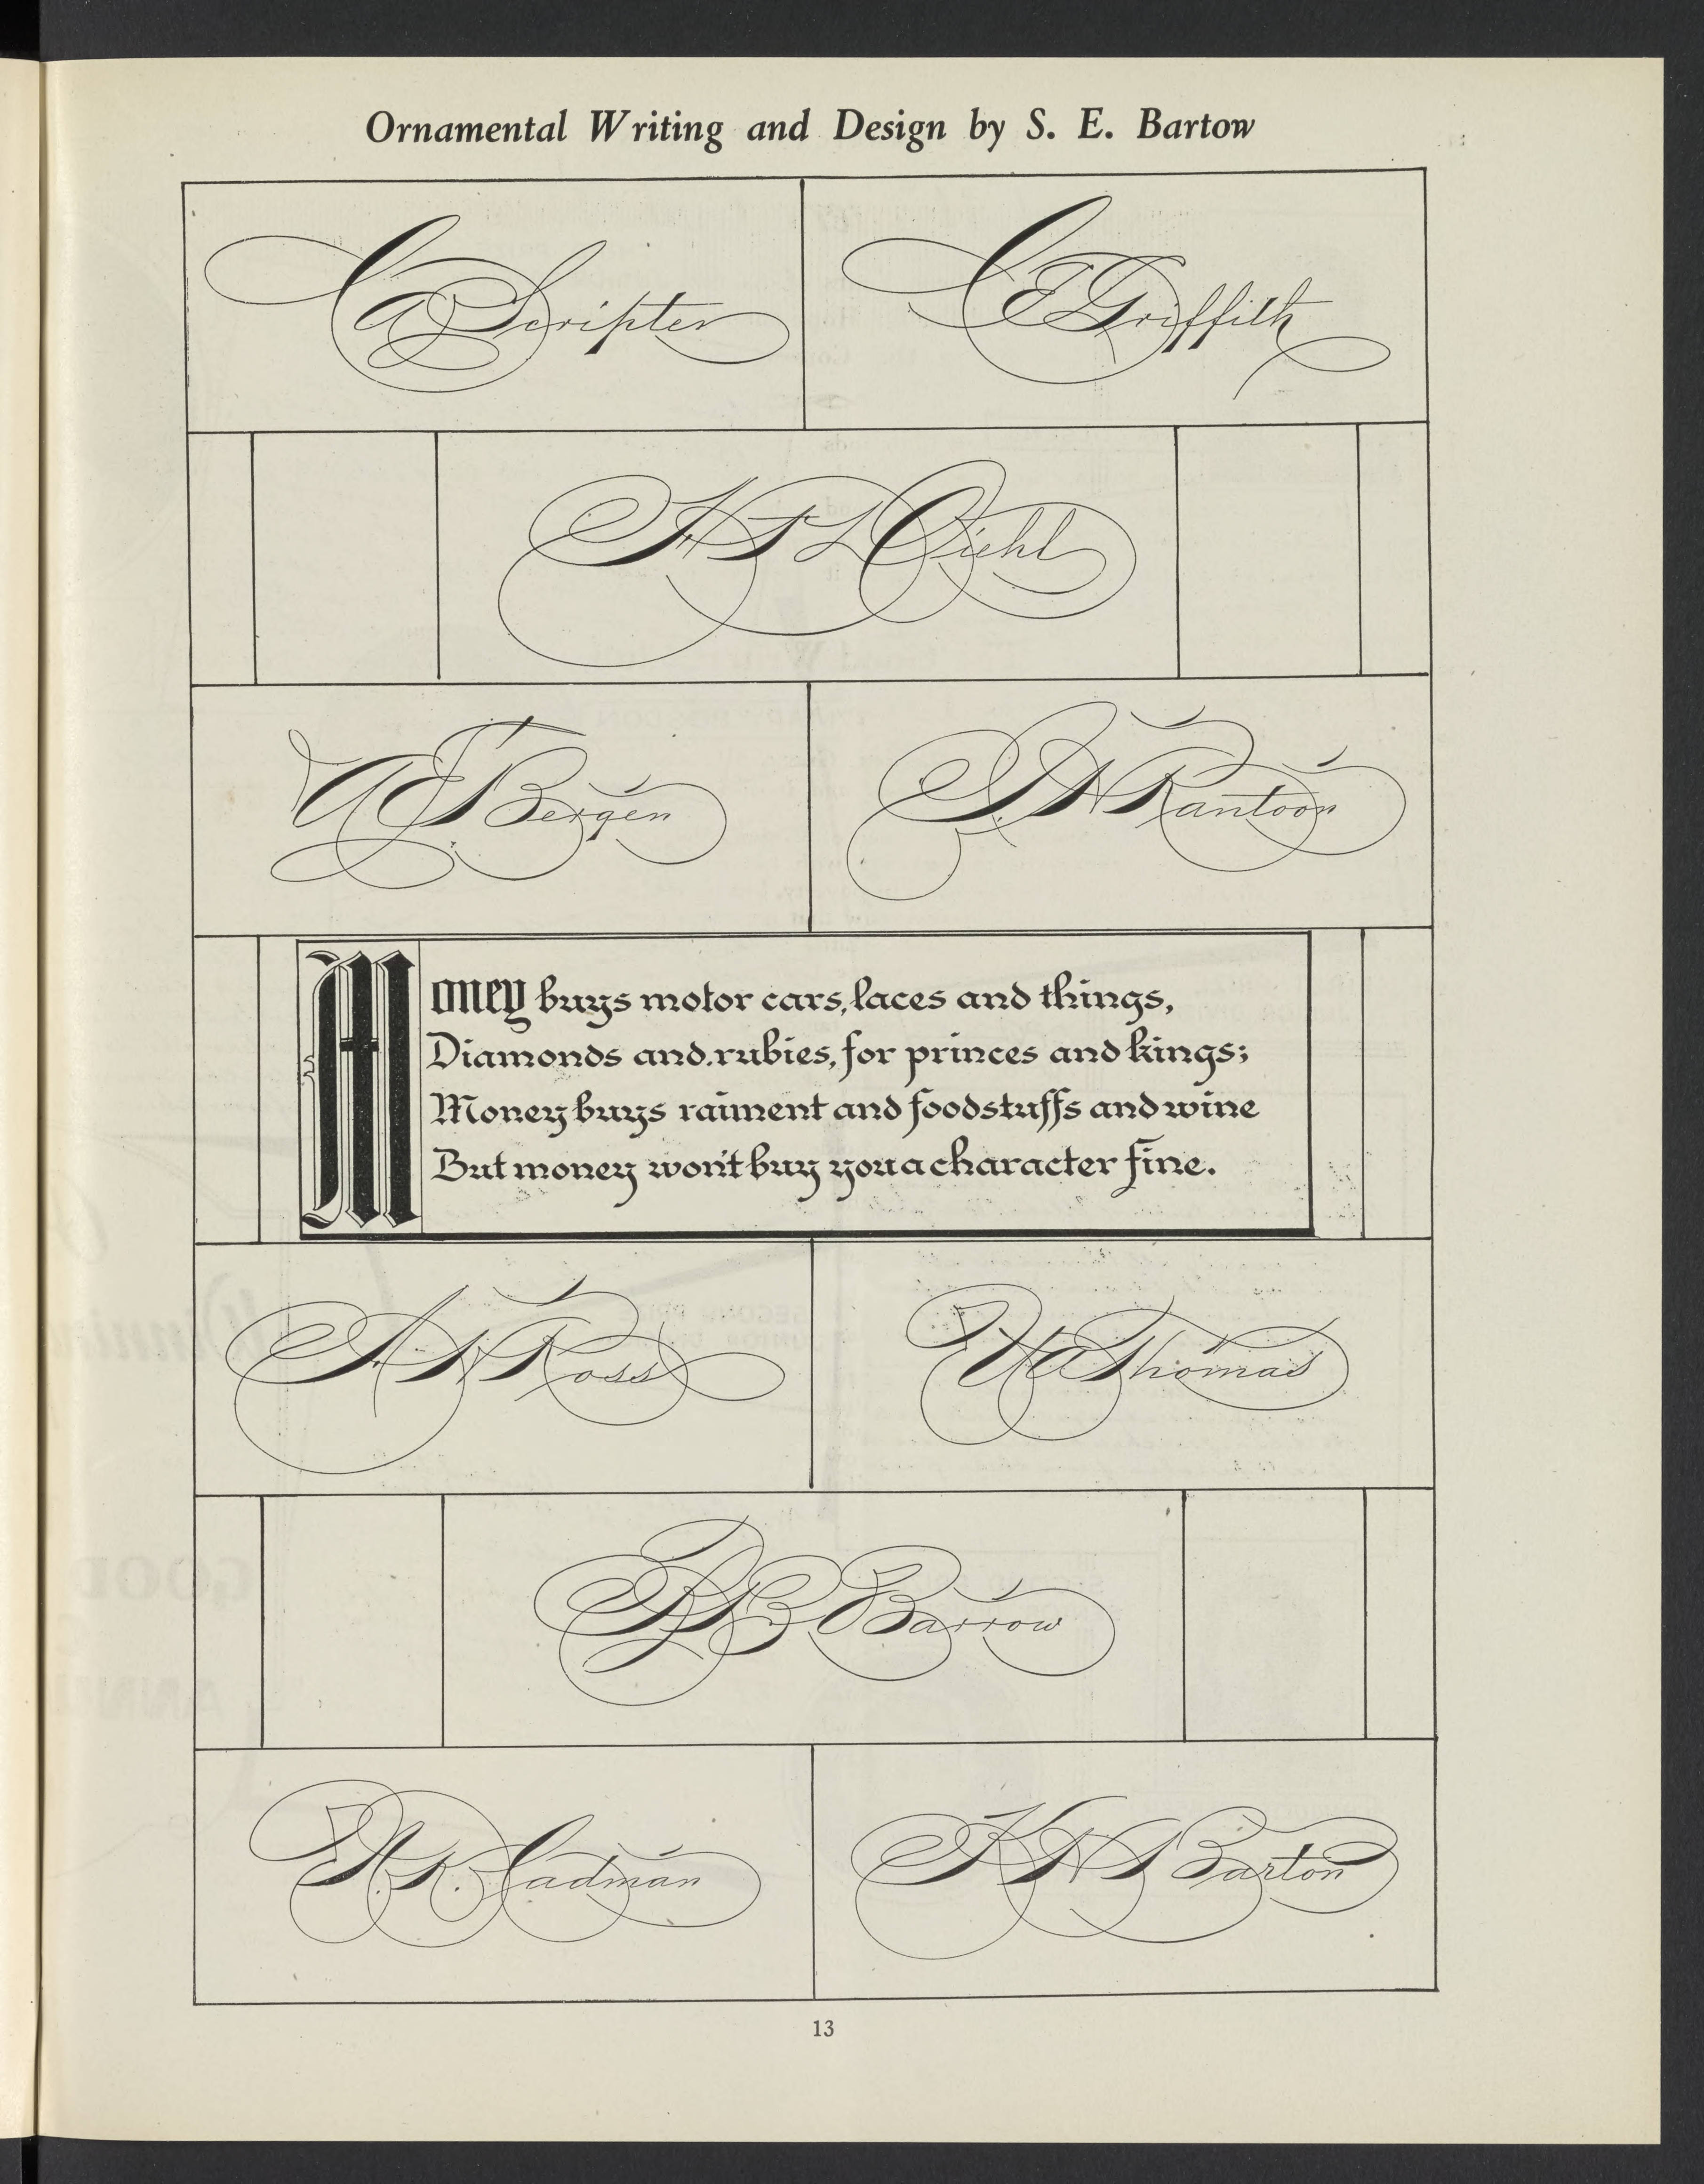 Ornamental Writing and Design by S. E. Bartow
C A Scripter
C E Griffith
Diehl
A E Bergen
S. N. Rantoon
Money buys motor cars, laces and things,
Diamonds and rubies, for princes and kings;
Money buys raiment and foodstuffs and wine
But money won't buy you a character fine.
A. N Ross
W A Thomas
Barrow
W. K. Cadman
K N Barton
13